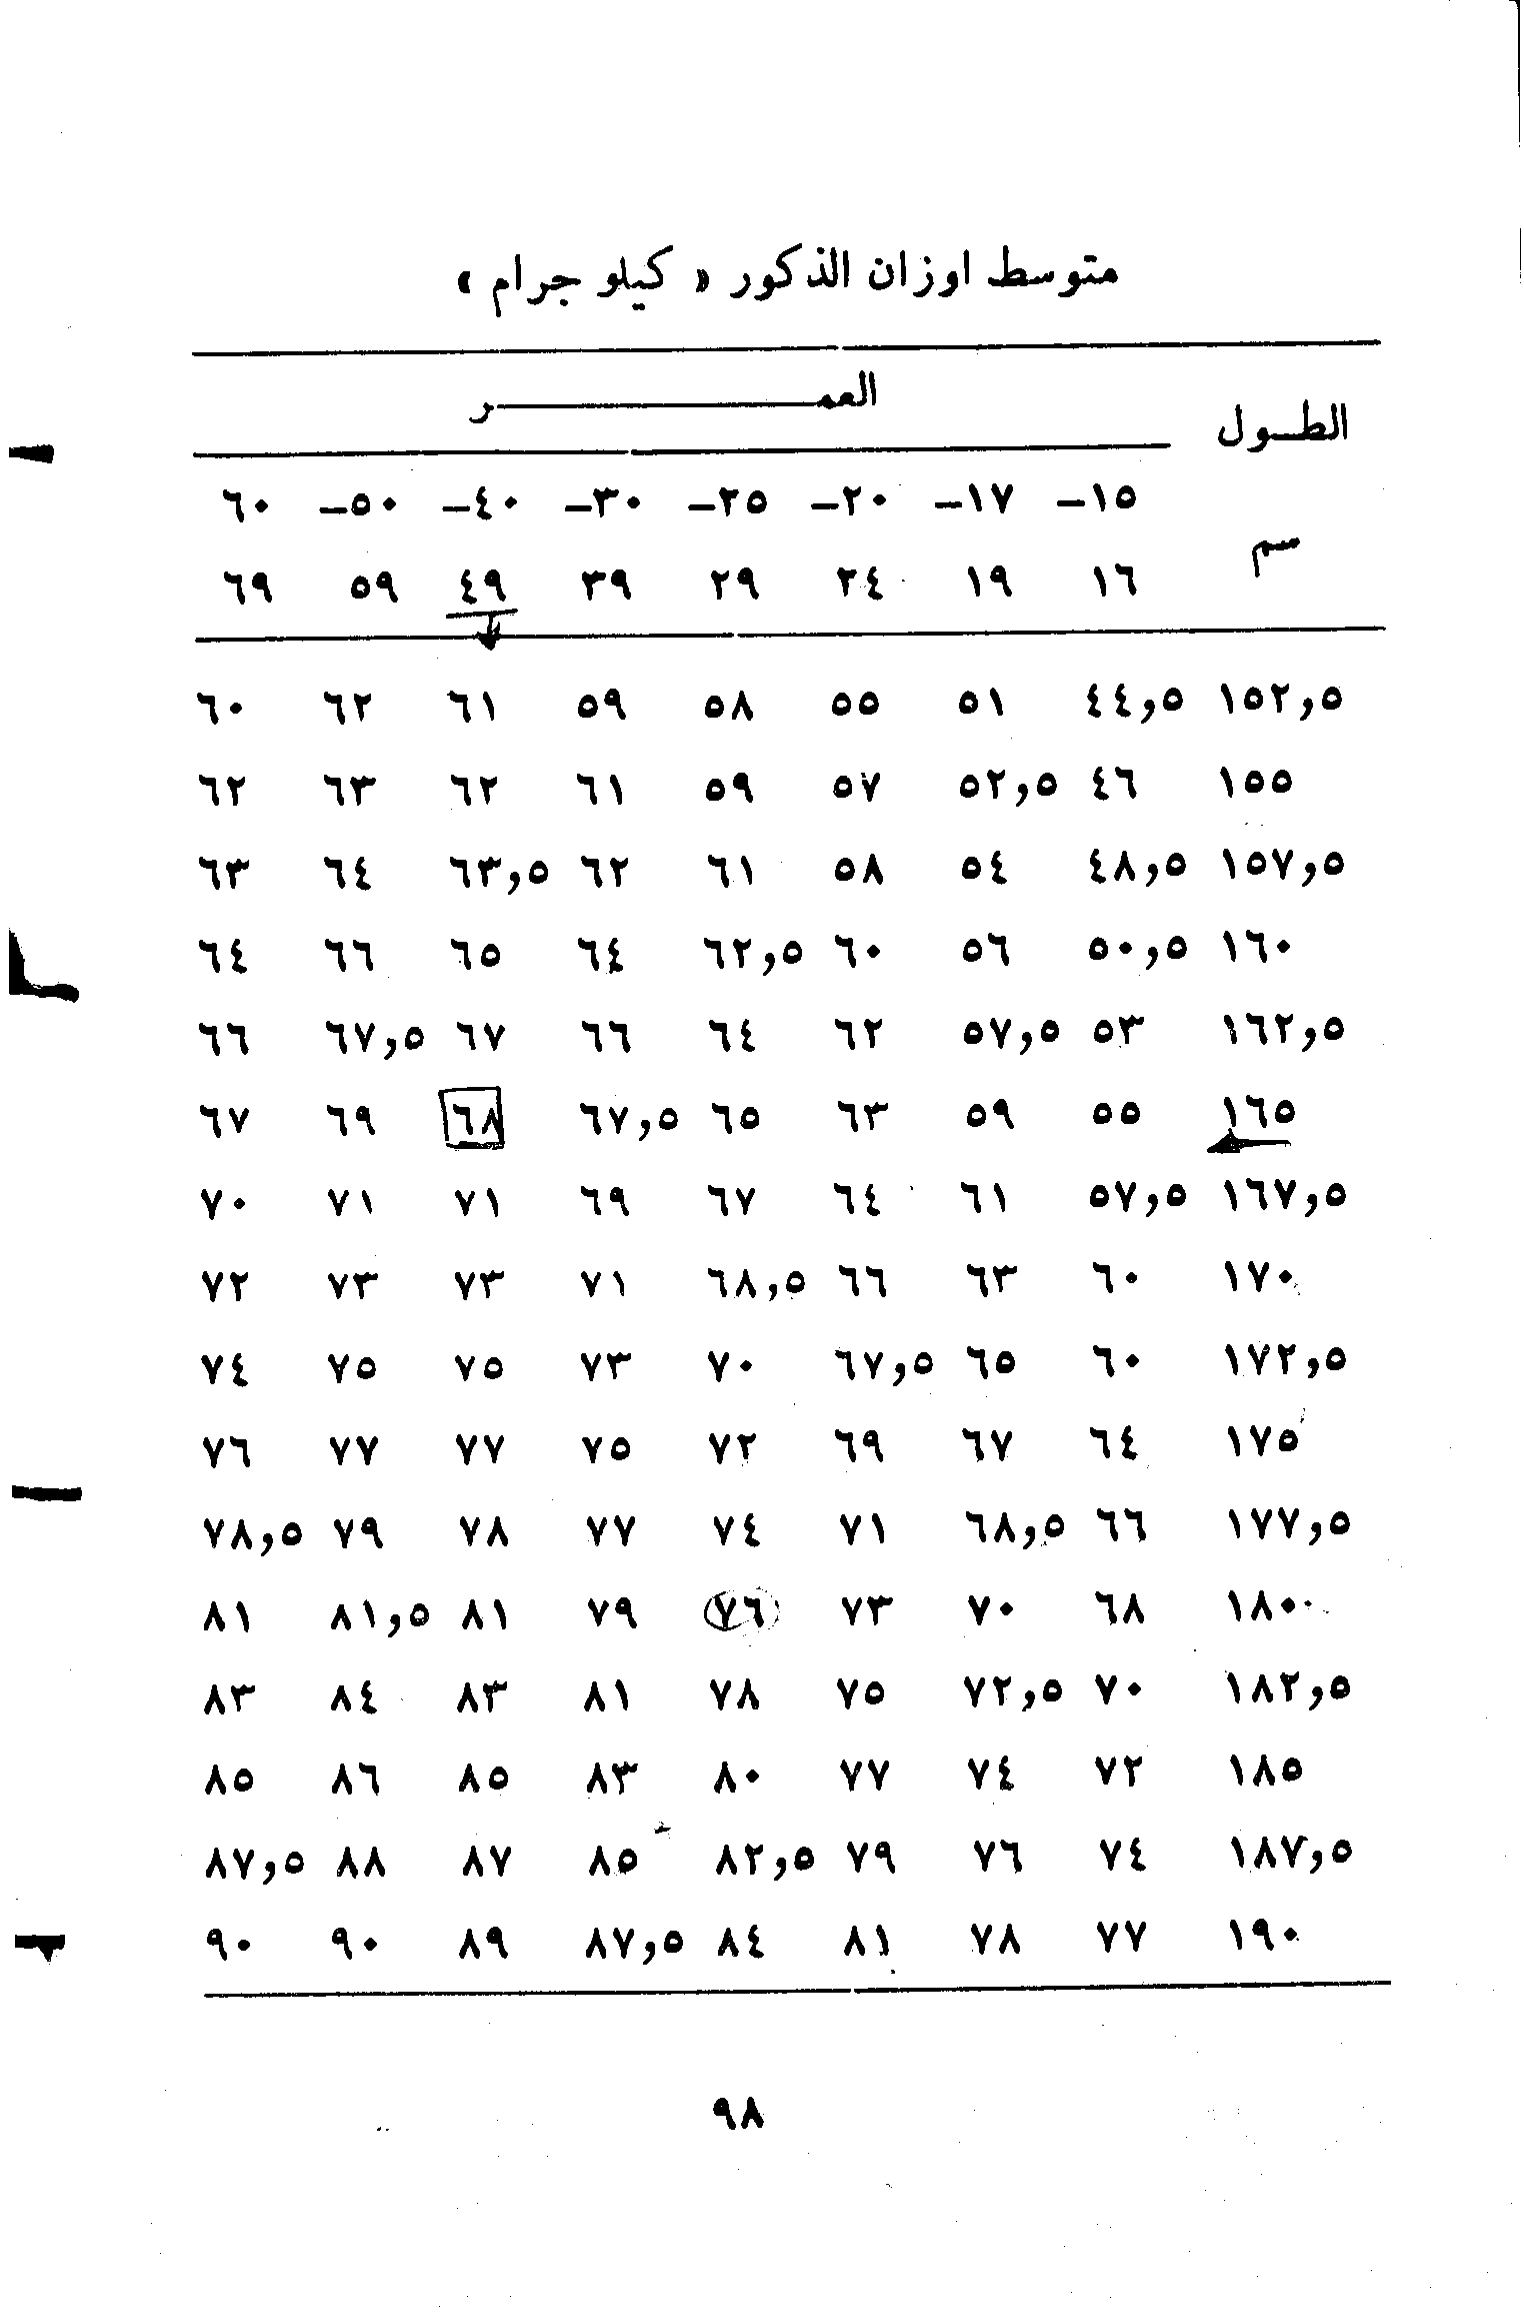 متوسط اوزان الذكور « كيلو جرام »
العمـــــــــر
الطـول
١٥– ١٧– ٢٠– ٢٥– ٣٠– ٤٠– ٥٠– ٦٠
سم
١٦ ١٩ ٢٤ ٢٩ ٣٩ ٤٩ ٥٩ ٦٩
١٥٢,٥ ٤٤,٥ ٥١ ٥٥ ٥٨ ٥٩ ٦١ ٦٢ ٦٠
١٥٥ ٤٦ ٥٢,٥ ٥٧ ٥٩ ٦١ ٦٢ ٦٣ ٦٢
١٥٧,٥ ٤٨,٥ ٥٤ ٥٨ ٦١ ٦٢ ٦٣,٥ ٦٤ ٦٣
١٦٠ ٥٠,٥ ٥٦ ٦٠ ٦٢,٥ ٦٤ ٦٥ ٦٦ ٦٤
١٦٢,٥ ٥٣ ٥٧,٥ ٦٢ ٦٤ ٦٦ ٦٧ ٦٧,٥ ٦٦
١٦٥ ٥٥ ٥٩ ٦٣ ٦٥ ٦٧,٥ ٦٨ ٦٩ ٦٧
١٦٧,٥ ٥٧,٥ ٦١ ٦٤ ٦٧ ٦٩ ٧١ ٧١ ٧٠
١٧٠ ٦٠ ٦٣ ٦٦ ٦٨,٥ ٧١ ٧٣ ٧٣ ٧٢
١٧٢,٥ ٦٠ ٦٥ ٦٧,٥ ٧٠ ٧٣ ٧٥ ٧٥ ٧٤
١٧٥ ٦٤ ٦٧ ٦٩ ٧٢ ٧٥ ٧٧ ٧٧ ٧٦
١٧٧,٥ ٦٦ ٦٨,٥ ٧١ ٧٤ ٧٧ ٧٨ ٧٩ ٧٨,٥
١٨٠ ٦٨ ٧٠ ٧٣ ٧٦ ٧٩ ٨١ ٨١,٥ ٨١
١٨٢,٥ ٧٠ ٧٢,٥ ٧٥ ٧٨ ٨١ ٨٣ ٨٤ ٨٣
١٨٥ ٧٢ ٧٤ ٧٧ ٨٠ ٨٣ ٨٥ ٨٦ ٨٥
١٨٧,٥ ٧٤ ٧٦ ٧٩ ٨٢,٥ ٨٥ ٨٧ ٨٨ ٨٧,٥
١٩٠ ٧٧ ٧٨ ٨١ ٨٤ ٨٧,٥ ٨٩ ٩٠ ٩٠
٩٨